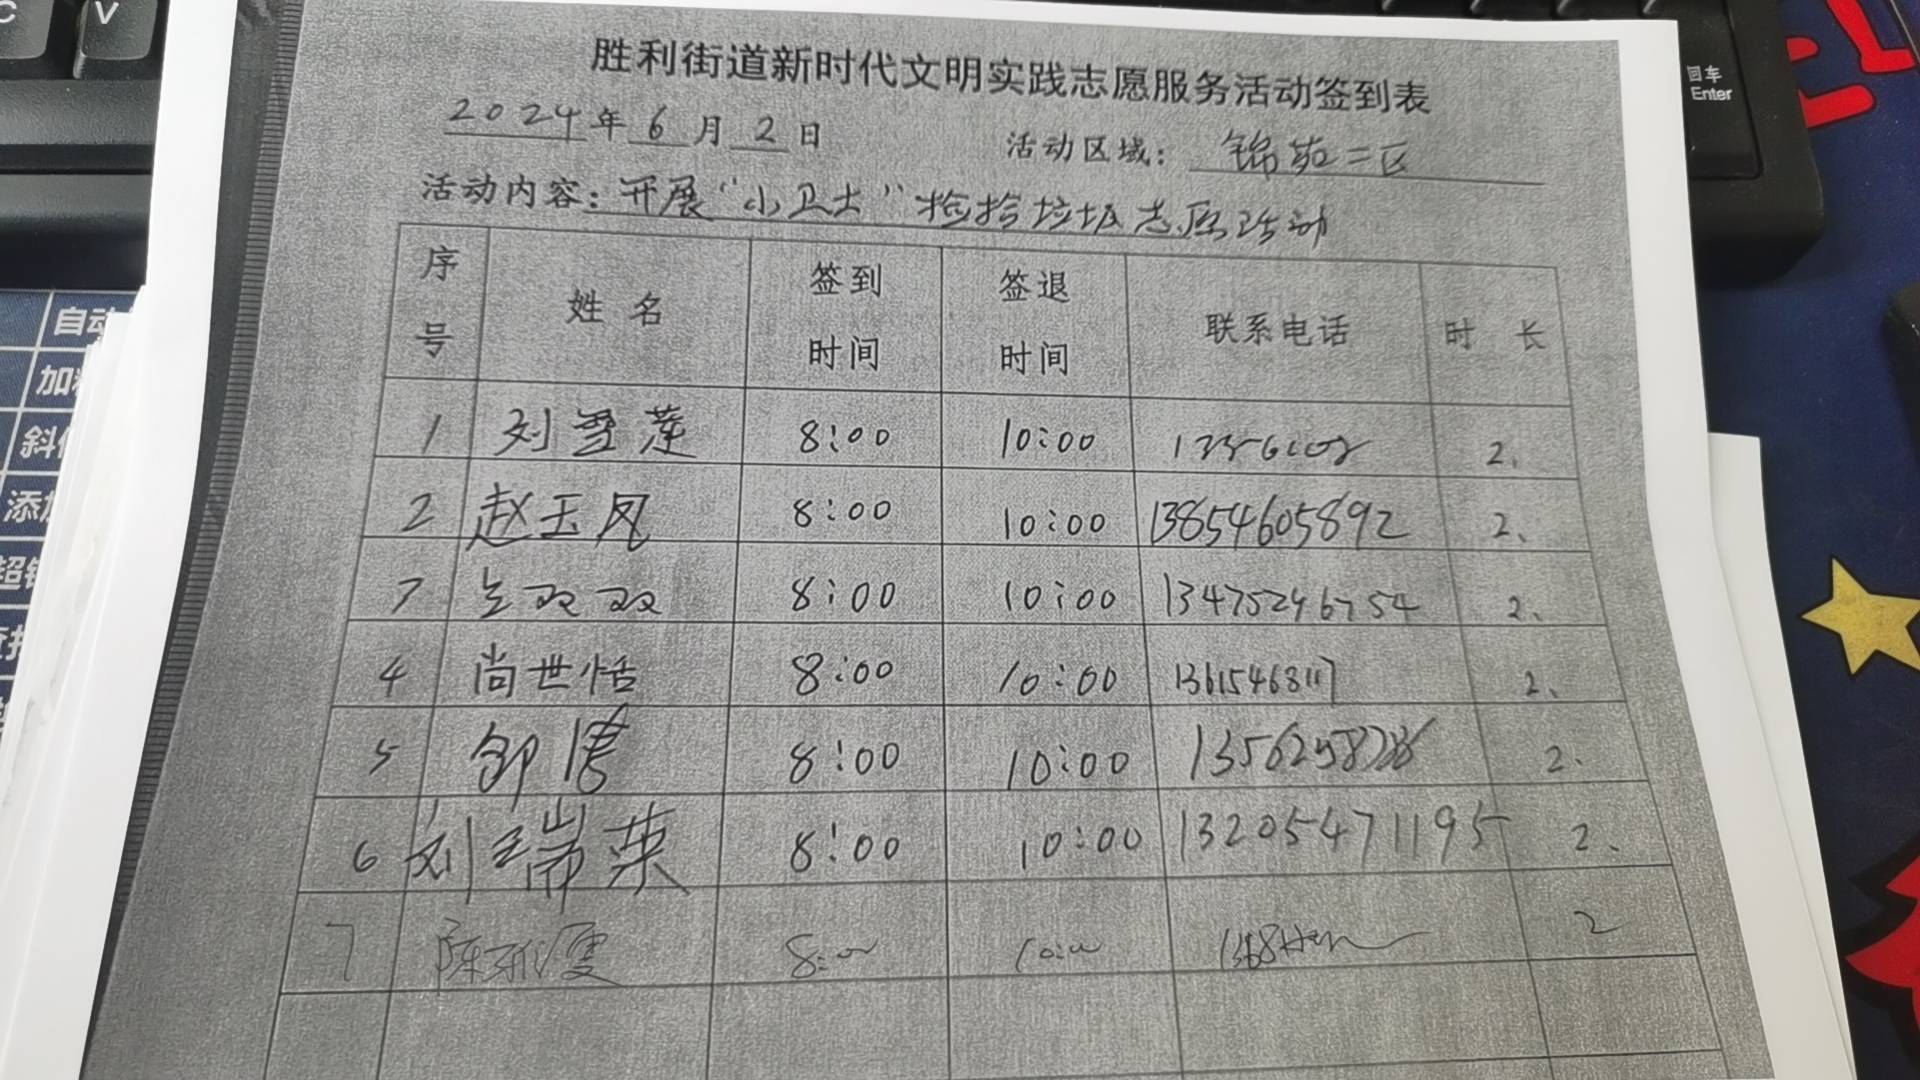 C
V
回车
Enter
自动
加
斜
添加
超
胜利街道新时代文明实践志愿服务活动签到表
2024年6月2日 活动区域：锦苑二区
活动内容：开展“小卫士”捡拾垃圾志愿活动
序号 姓名 签到时间 签退时间 联系电话 时长
1 刘雪莲 8:00 10:00 2.
2 赵玉凤 8:00 10:00 13854605892 2、
3 双双 8:00 10:00 13475246754 2、
4 尚世恬 8:00 10:00 13615468117 2、
5 邹 8:00 10:00 2.
6 刘瑞荣 8:00 10:00 13205471195 2、
7 陈 8:00 10:00 2